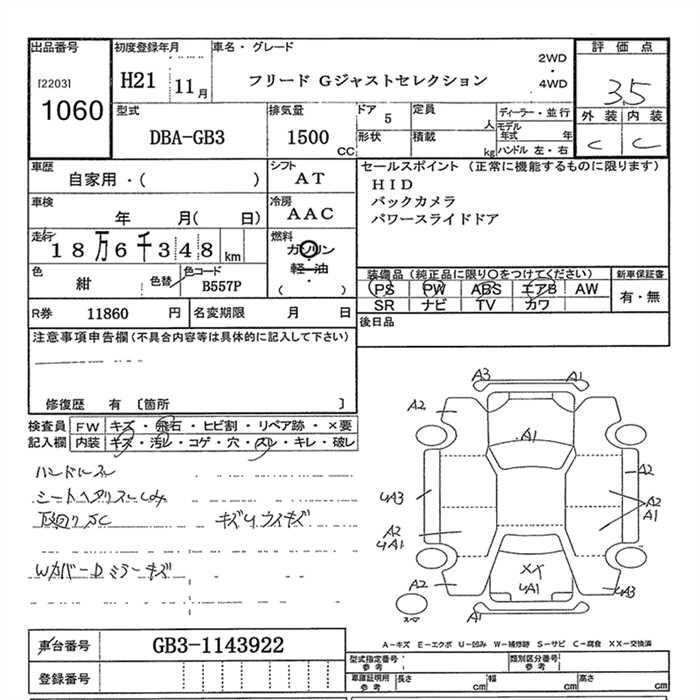 出品番号 初度登録年月 車名・グレード 評価点
[2203] H21 11月 フリード Gジャストセレクション 2WD・4WD 3.5
1060 外装 内装
型式 排気量 ドア 5 定員 人 ディーラー・並行 C C
DBA-GB3 1500 CC 形状 積載 kg モデル年式 年
ハンドル 左・右
車歴 シフト セールスポイント (正常に機能するものに限ります)
自家用・( ) AT HID
車検 冷房 バックカメラ
年 月( 日) AAC パワースライドドア
走行 燃料
18万6千348 km ガソリン
軽・油
色 色替 色コード ( ) 装備品(純正品に限り○をつけてください) 新車保証書
紺 B557P PS PW ABS エアB AW 有・無
SR ナビ TV カワ
R券 11860 円 名変期限 月 日 後日品
注意事項申告欄(不具合内容等は具体的に記入して下さい)
修復歴 有 〔箇所 〕
検査員 FW キズ・飛石・ヒビ割・リペア跡・×要
記入欄 内装 キズ・汚レ・コゲ・穴・スレ・キレ・破レ
ハンドルスレ
シートヘタリスレしみ
下回りSC キズUウスキズ
WカバーDミラーキズ
A3 A1
A2
A1
A2
UA3
A2
A1
A2
UA1
XX
UA1
A2 UA3
A1
スペア
A-キズ E-エクボ U-凹み W-補修跡 S-サビ C-腐食 XX-交換済
車台番号 GB3-1143922
型式指定番号 参考 類別区分番号 参考
登録番号 車庫証明用 参考 長さ cm 幅 cm 高さ cm